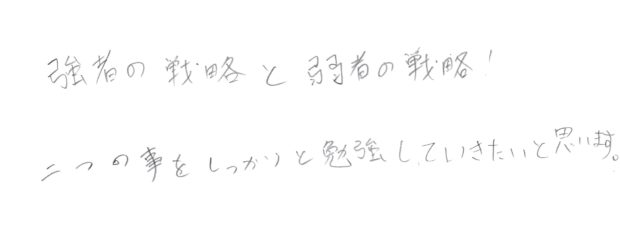 強者の戦略と弱者の戦略！
二つの事をしっかりと勉強していきたいと思います。